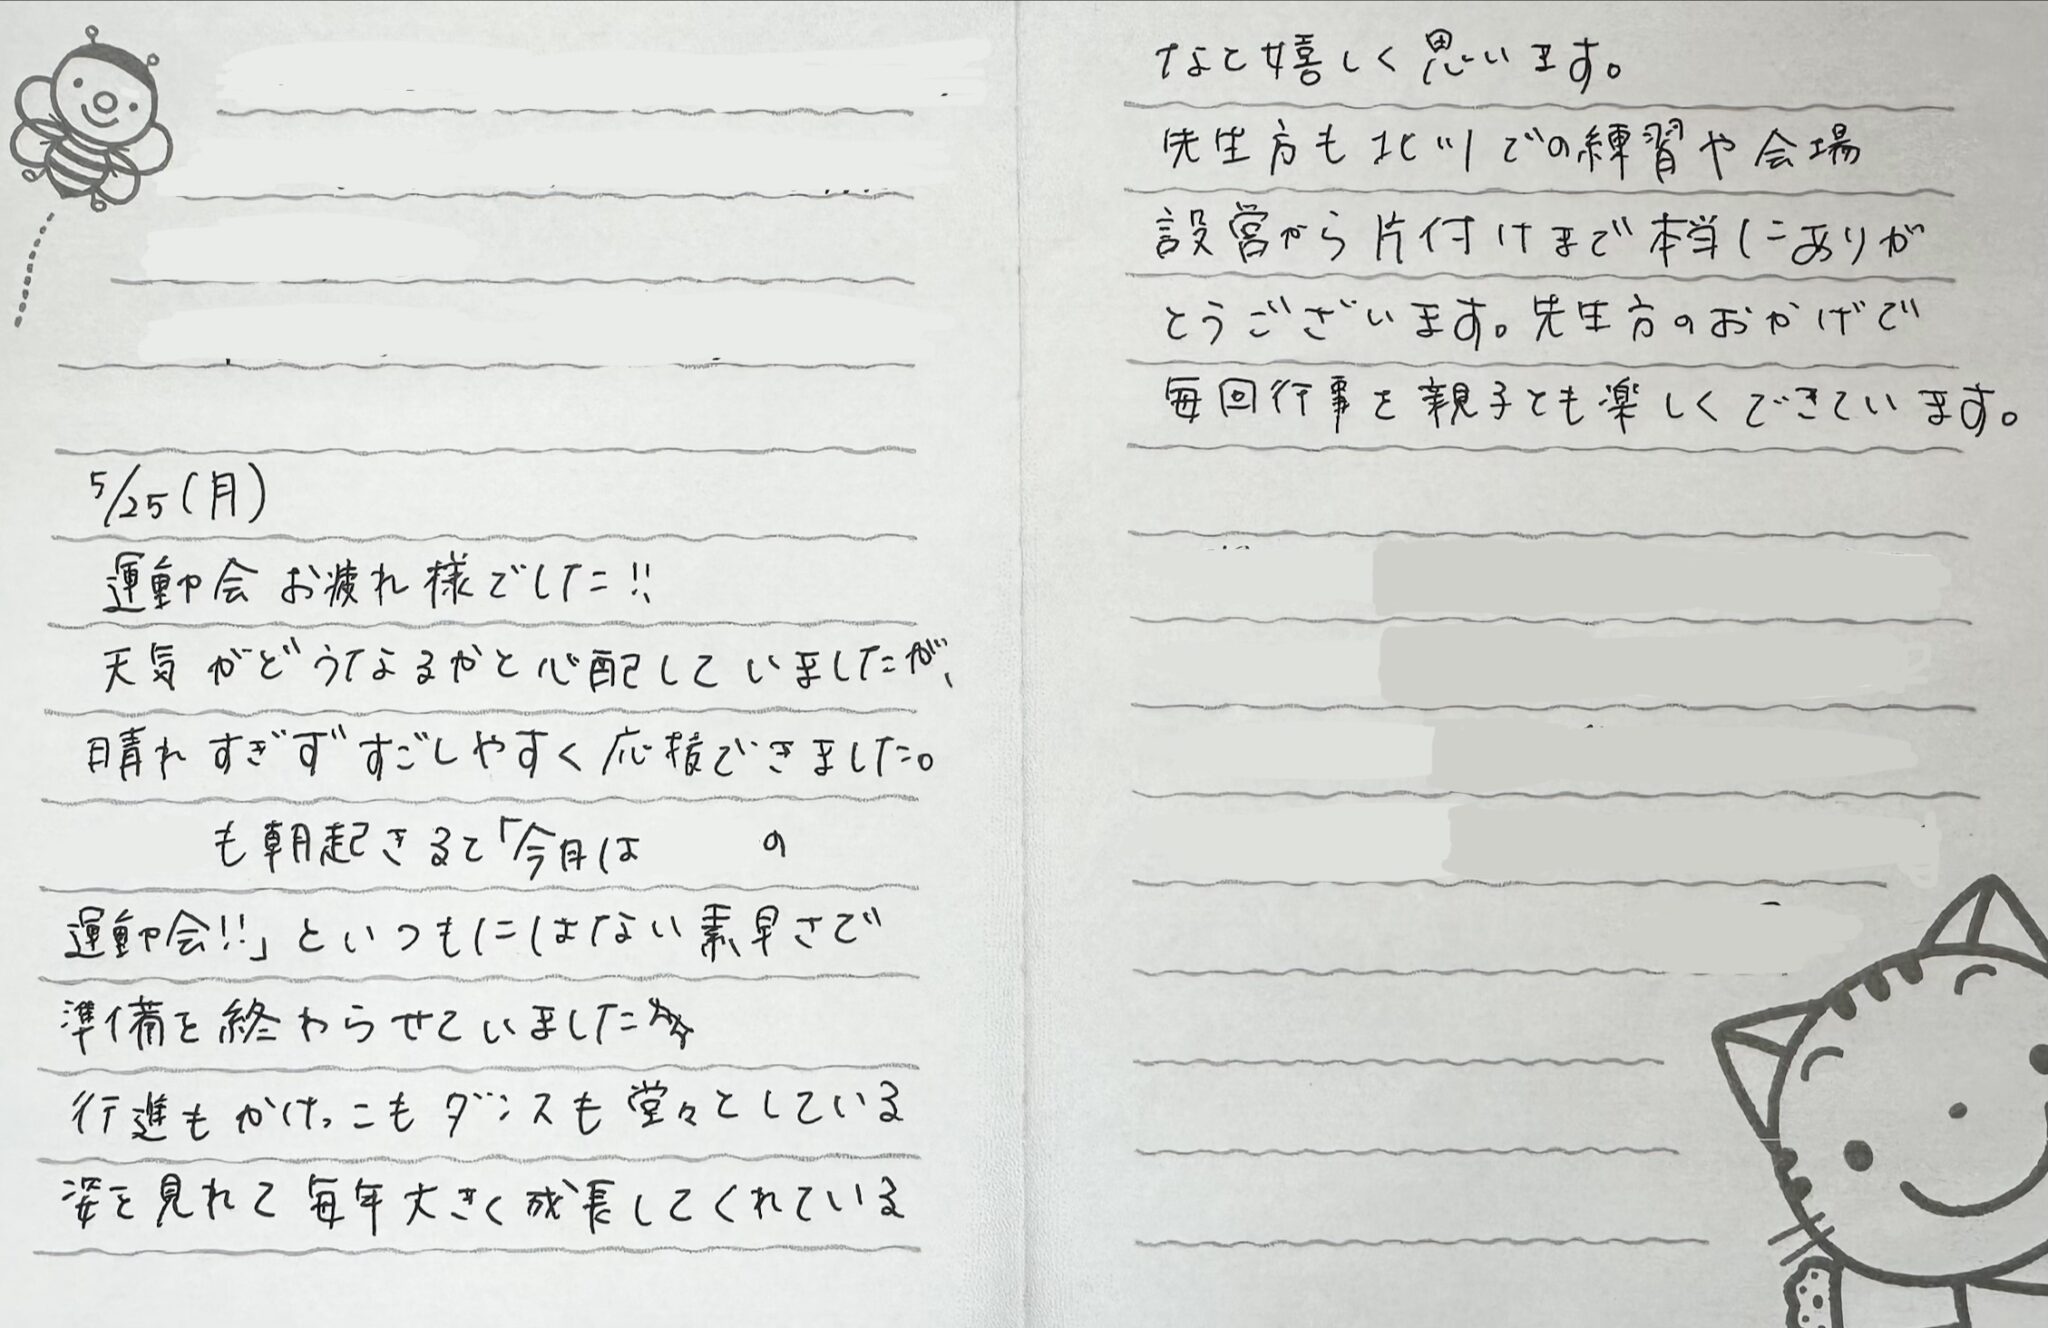 5/25(月)
運動会お疲れ様でした!!
天気がどうなるかと心配していましたが、
晴れすぎずすごしやすく応援できました。
も朝起きると「今日は の
運動会!!」といつもにはない素早さで
準備を終わらせていました
行進もかけっこもダンスも堂々としている
姿を見れて毎年大きく成長してくれている
なと嬉しく思います。
先生方も北小での練習や会場
設営から片付けまで本当にありが
とうございます。先生方のおかげで
毎回行事を親子とも楽しくできています。